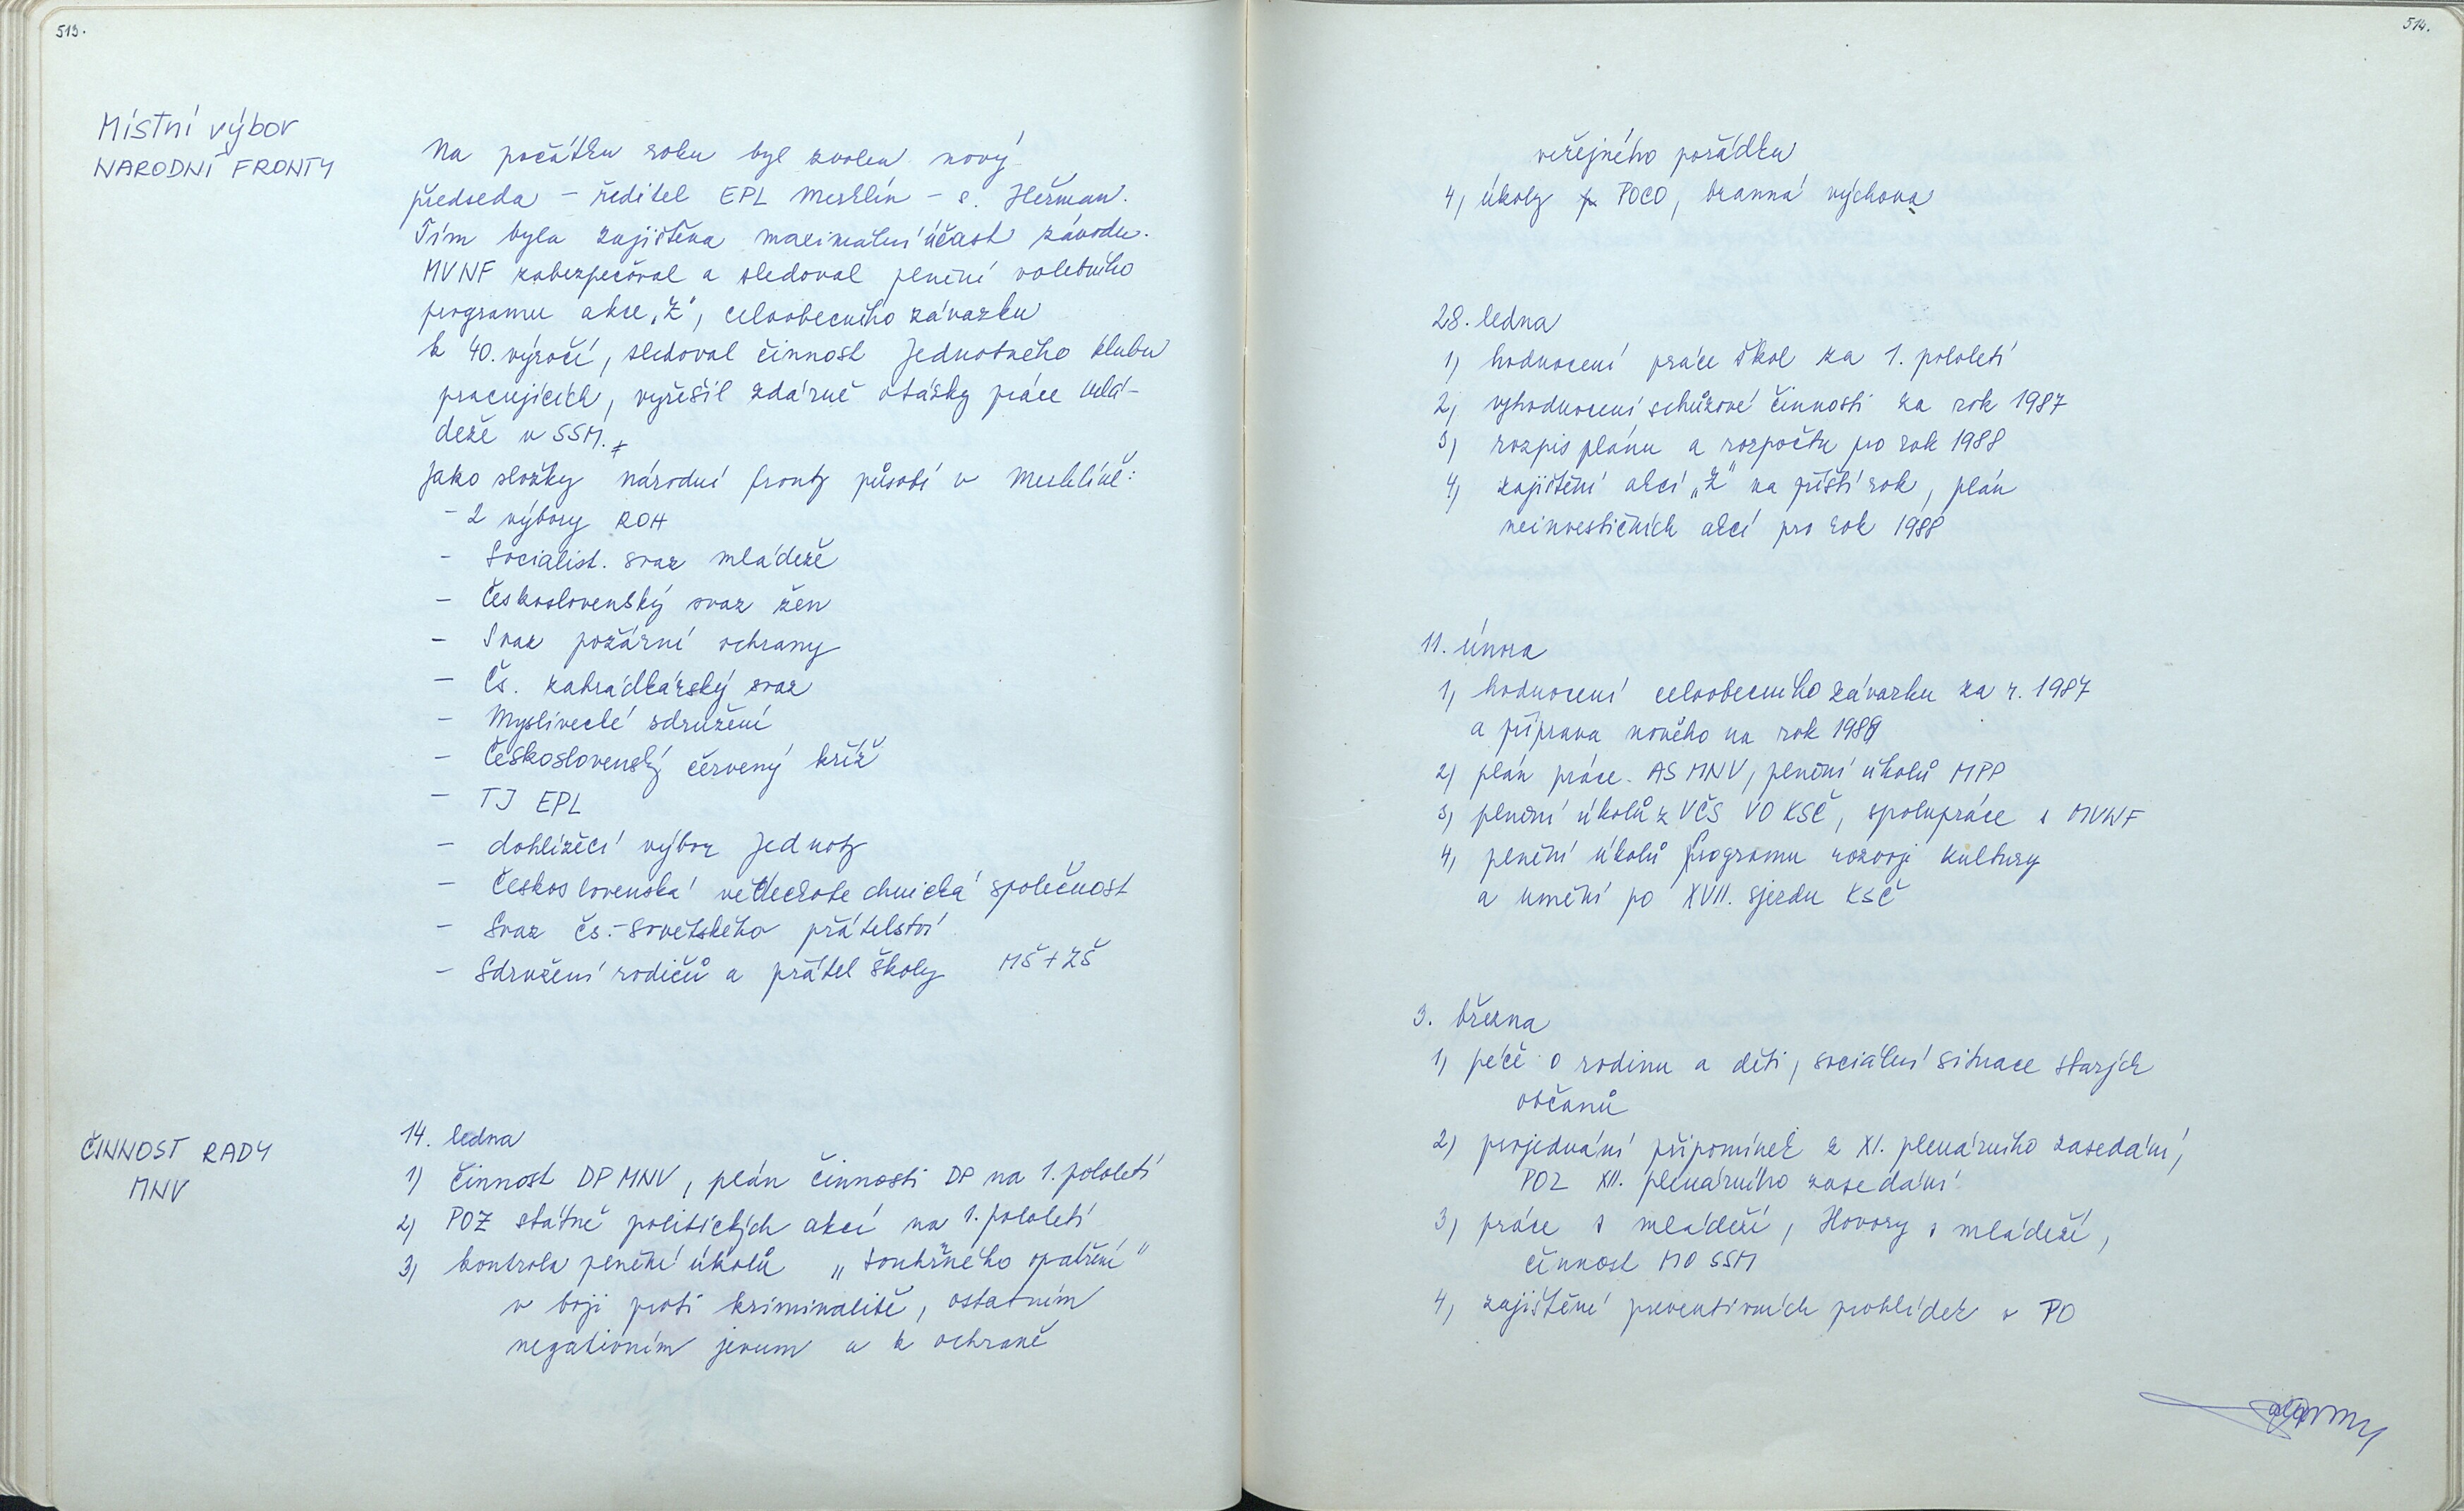 513.
Místní výbor
NARODNÍ FRONTY
Na počátku roku byl zvolen nový
předseda - ředitel EPL Merklín - s. Heřman.
Tím byla zajištěna maximální účast závodu.
MVNF zabezpečoval a sledoval plnění volebního
programu akce „Z", celoobecního závazku
k 40. výročí, sledoval činnost Jednotného klubu
pracujících, vyřešil zdárně otázky práce mlá-
deže v SSM.
Jako složky národní fronty působí v Merklíně:
- 2 výbory ROH
- Socialist. svaz mládeže
- Československý svaz žen
- Svaz požární ochrany
- Čs. zahrádkářský svaz
- Myslivecké sdružení
- Československý červený kříž
- TJ EPL
- dohlížecí výbor Jednoty
- Československá vědeckotechnická společnost
- Svaz čs.-sovětského přátelství
- Sdružení rodičů a přátel školy MŠ + ZŠ
ČINNOST RADY
MNV
14. ledna
1) Činnost DP MNV, plán činnosti DP na 1. pololetí
2) POZ státně politických akcí na 1. pololetí
3) kontrola plnění úkolů „Souhrného opatření"
v boji proti kriminalitě, ostatním
negativním jevum a k ochraně
514.
veřejného pořádku
4) úkoly POCO, branná výchova
28. ledna
1) hodnocení práce škol za 1. pololetí
2) vyhodnocení schůzové činnosti za rok 1987
3) rozpis plánu a rozpočtu pro rok 1988
4) zajištění akcí „Z" na příští rok, plán
neinvestičních akcí pro rok 1988
11. února
1) hodnocení celoobecního závazku za r. 1987
a příprava nového na rok 1988
2) plán práce AS MNV, plnění úkolů MPP
3) plnění úkolů z VČS VO KSČ, spolupráce s MVNF
4) plnění úkolů Programu rozvoje kultury
a umění po XVII. sjezdu KSČ
3. března
1) péče o rodinu a děti, sociální situace starých
občanů
2) projednání připomínek z XI. plenárního zasedání,
POZ XII. plenárního zasedání
3) práce s mládeží, Hovory s mládeží,
činnost MO SSM
4) zajištění preventivních prohlídek v PO